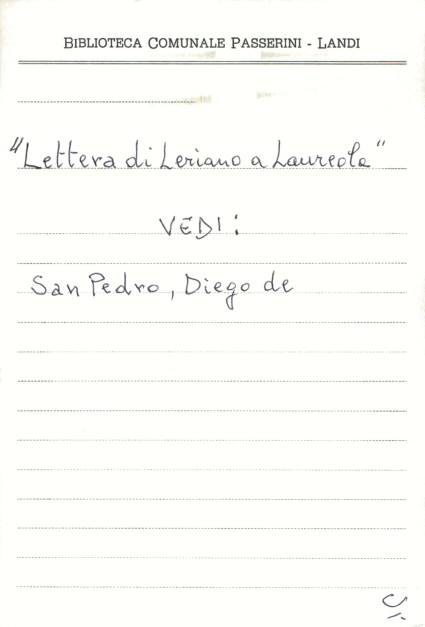 BIBLIOTECA COMUNALE PASSERINI - LANDI
"Lettera di Leriano a Laureola"
VEDI:
San Pedro, Diego de